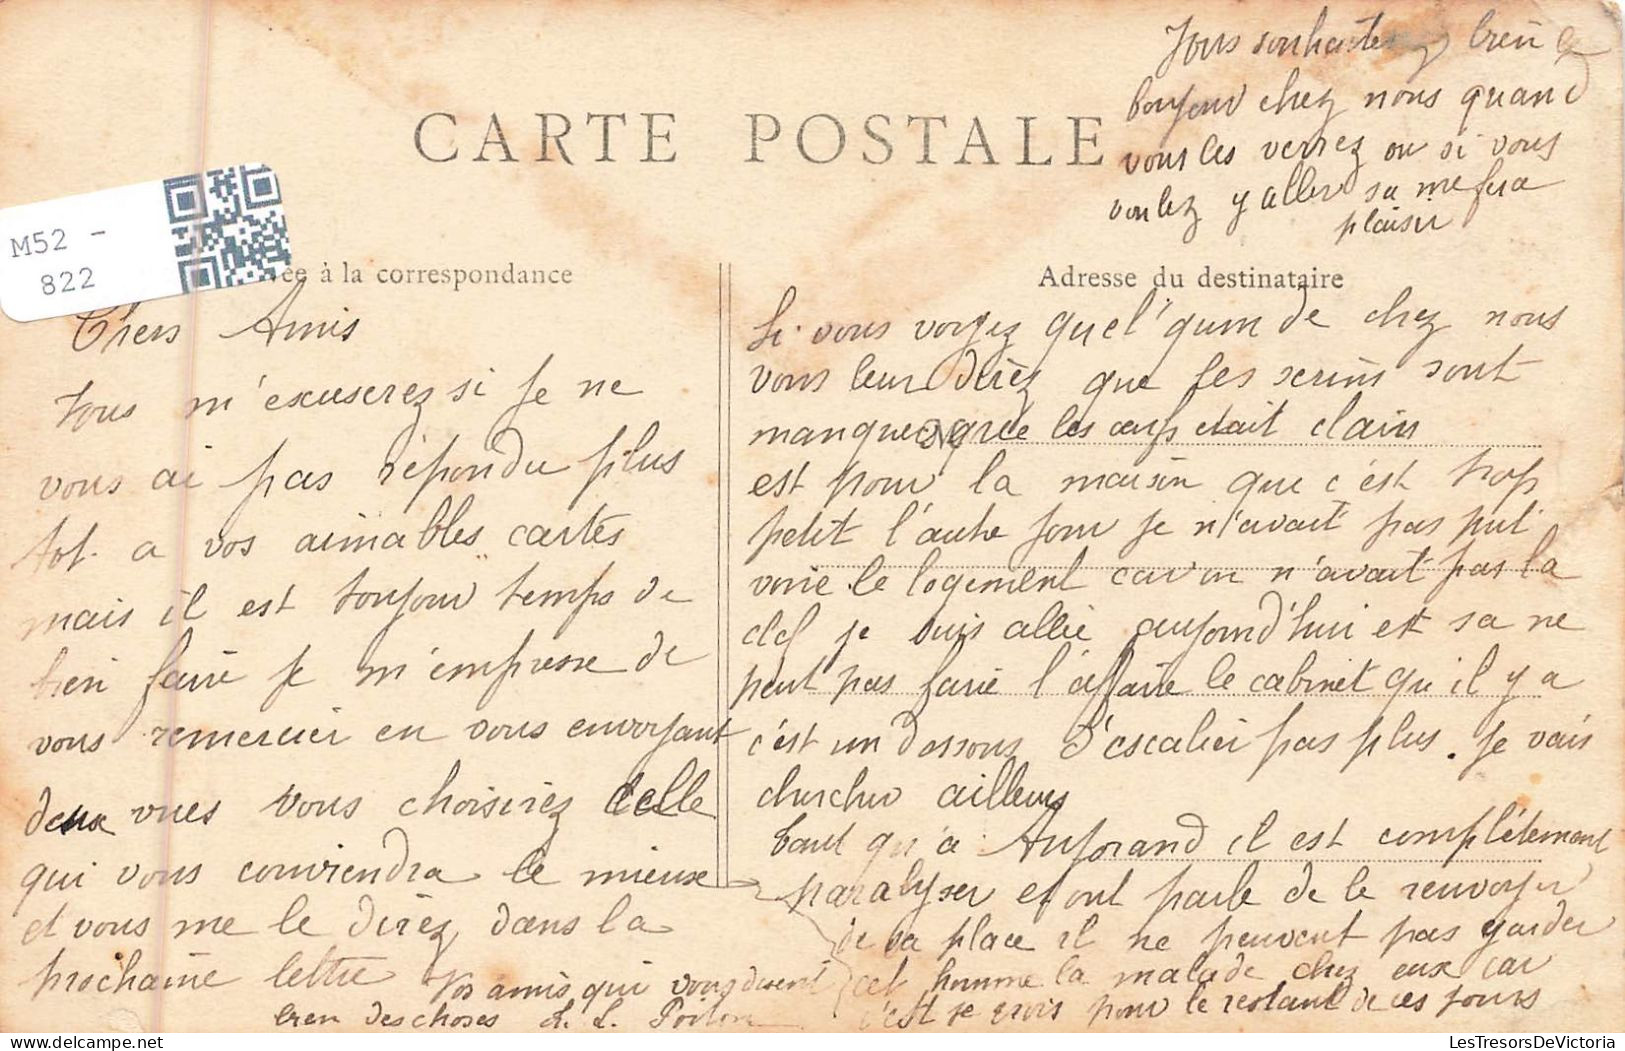 CARTE POSTALE
Vous souhaiterez bien le
bonjour chez nous quand
vous les verrez ou si vous
voulez y aller sa me fera
plaisir
M52 -
822
vée à la correspondance
Adresse du destinataire
Chers Amis
Vous m'excuserez si je ne
vous ai pas répondu plus
tot a vos aimables cartes
mais il est toujour temps de
bien faire je m'empresse de
vous remercier en vous envoyant
deux vues vous choisirez celle
qui vous conviendra le mieux
et vous me le direz dans la
prochaine lettre Vos amis qui vous disent
bien des choses L. L.
Si vous voyez quel'qum de chez nous
vous leur direz que les serins sont
manques que les œufs etait clairs
est pour la maison que c'est trop
petit l'autre jour je n'avait pas put
voire le logement car on n'avait pas la
clef je suis allée aujourd'hui et sa ne
peut pas faire l'affaire le cabinet qu'il y a
c'est un dessous d'escalier pas plus. je vais
chercher ailleurs
Quant qu'a il est complétement
paralyser et ont parle de le renvoyer
de sa place il ne peuvent pas garder
cet homme la malade chez eux car
c'est je crois pour le restant de ces jours
LesTresorsDeVictoria.com